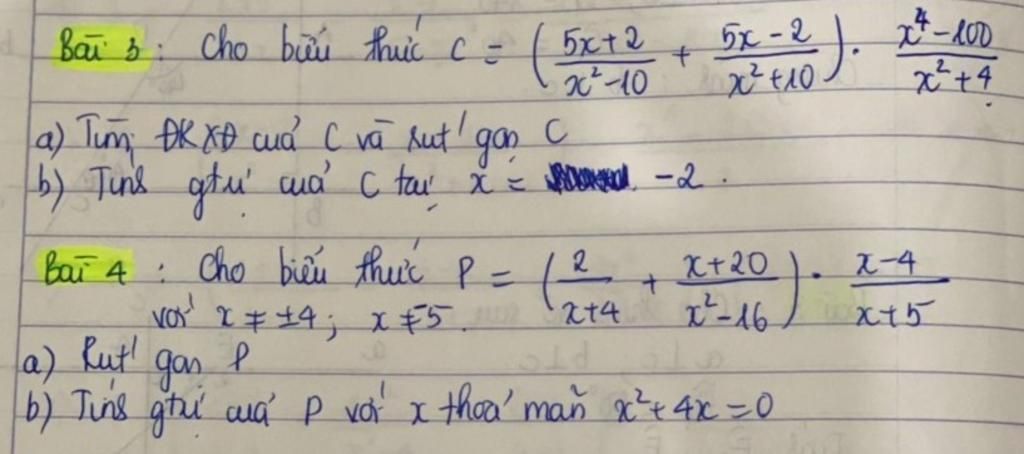 Bài 3: Cho biểu thức C = (5x+2/x²-10 + 5x-2/x²+10) · x⁴-100/x²+4
a) Tìm ĐKXĐ của C và rút gọn C
b) Tính gtrị của C tại x = -2.
Bài 4: Cho biểu thức P = (2/x+4 + x+20/x²-16) · x-4/x+5
với x ≠ ±4; x ≠ -5.
a) Rút gọn P
b) Tính gtrị của P với x thoả mãn x²+4x=0